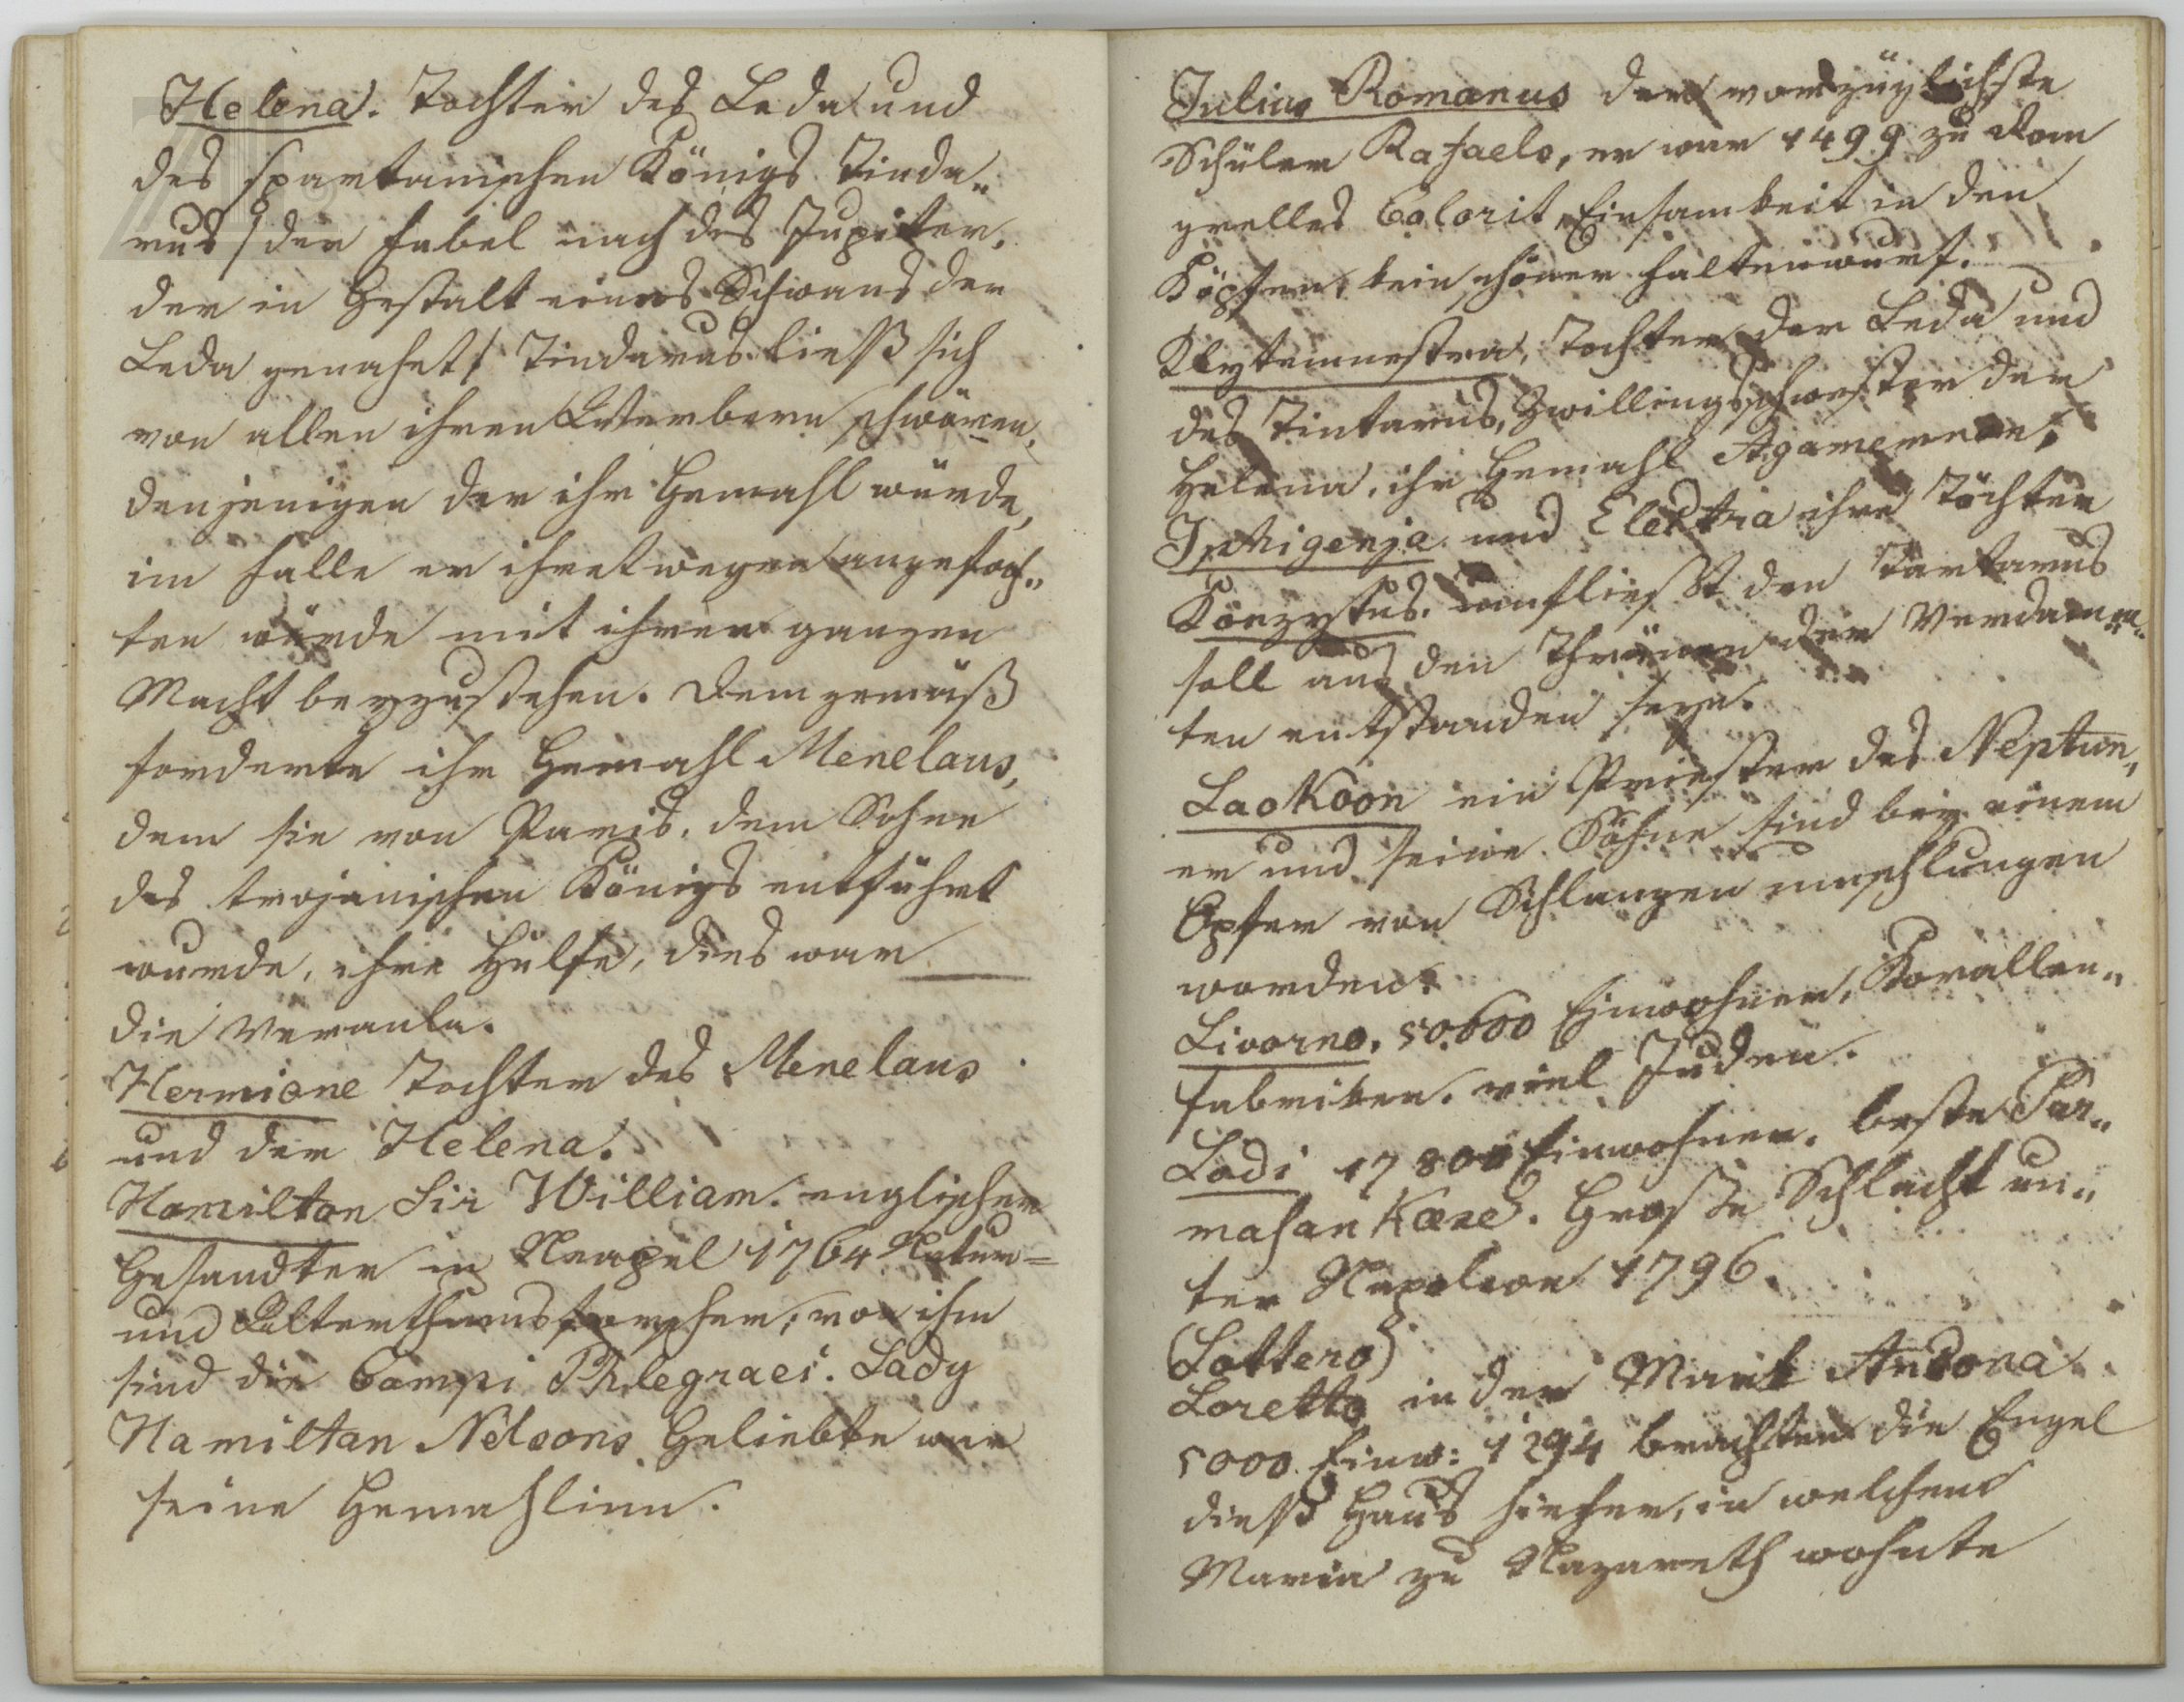 Helena. Tochter des Leda und
des spartanischen Königs Tinda„
rus / der Fabel nach des Jupiter,
der in Gestalt eines Schwans der
Leda genahet / Tindarus ließ sich
von allen ihren Bewerbern schwören,
denjenigen der ihr Gemahl würde,
im Falle er ihretwegen angefoch„
ten würde mit ihrer ganzen
Macht beyzustehen. Dem gemäß
forderte ihr Gemahl Menelaus,
dem sie von Paris, dem Sohne
des trojanischen Königs entführt
wurde, ihre Hülfe, dies war
die Veranla.
Hermione Tochter des Menelaus
und der Helena.
Hamilton Sir William. englischer
Gesandter in Neapel 1764 Natur=
und Alterthumsforscher, von ihm
sind die Campi Phlegraei. Lady
Hamiltan Nelsons Geliebte war
seine Gemahlinn.
Julius Romanus der vorzüglichste
Schüler Rafaels, er war 1499 zu Rom
grelles Colorit, Einsamkeit in den
Köpfen, kein schöner Faltenwurf.
Klytemnestra, Tochter der Leda und
des Tintarus, Zwillingsschwester der
Helena, ihr Gemahl Agamemnon,
Iphigenja und Elektra ihre Töchter
Konzytus. umfließt den Tartarus
soll aus den Thränen der Verdamm„
ten entstanden seyn.
Laokoon ein Priester des Neptun,
er und seine Söhne sind bey einem
Opfer von Schlangen umschlungen
worden.
Livorno. 50.600 Einwohner, Korallen„
fabriken. viel Juden.
Lodi 17800 Einwohner. beste Par„
masan Kæse. Große Schlacht un„
ter Napoleon 1796.
(Lottero)
Loretto in der Mark Ancona
5000 Einw: 1294 brachten die Engel
dieß Haus hieher, in welchem
Maria zu Nazareth wohnte